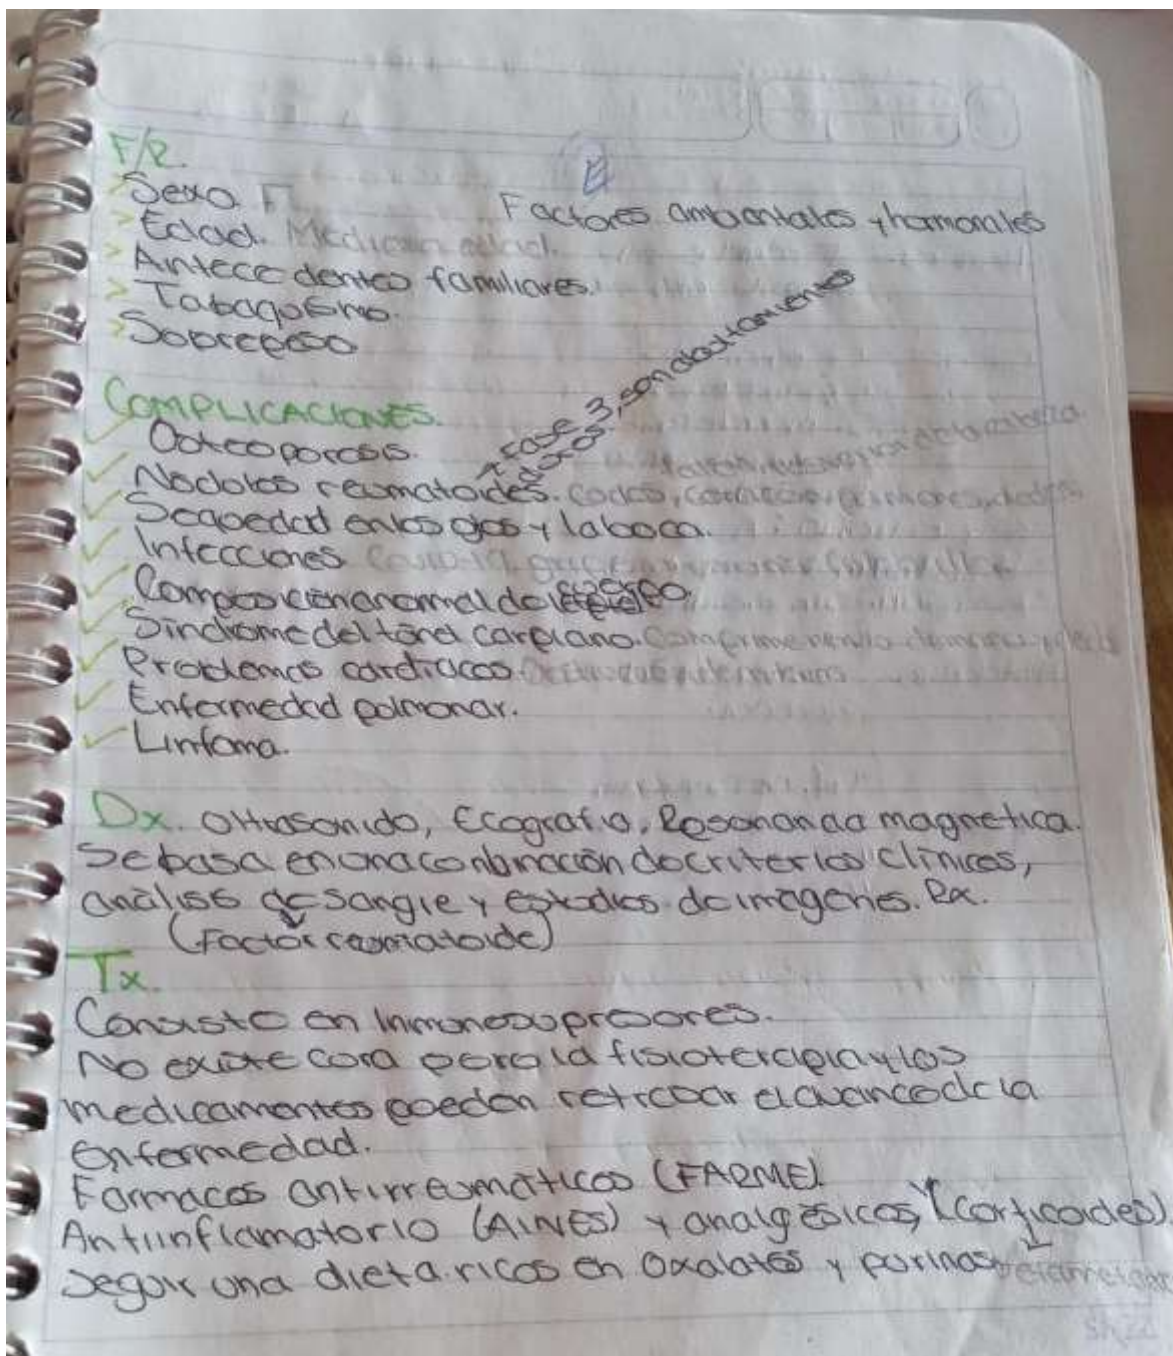 F/R.
Sexo F
Factores ambientales y hormonales
Edad. Mediana edad.
Antecedentes familiares.
Tabaquismo.
Sobrepeso
COMPLICACIONES.
Osteoporosis.
Fase 3, son altamiento
duros.
Nódulos reumatoides. Codos,
Sequedad en los ojos y la boca.
Infecciones Covid-19,
Composición anormal del cuerpo.
Síndrome del túnel carpiano.
Problemas cardíacos.
Enfermedad pulmonar.
Linfoma.
Dx. Ultrasonido, Ecografía, Resonancia magnetica.
Se basa en una conbinación de criterios clínicos,
análisis de sangre y estudios de imágenes. Rx.
(Factor reumatoide)
Tx.
Consiste en Inmunosupresores.
No existe cura pero la fisioterapia y los
medicamentos pueden retrasar el avance de la
enfermedad.
Farmacos antirreumáticos (FARME)
Antiinflamatorio (AINES) y analgésicos, (Corticoides)
Seguir una dieta ricos en Oxalatos y purinas